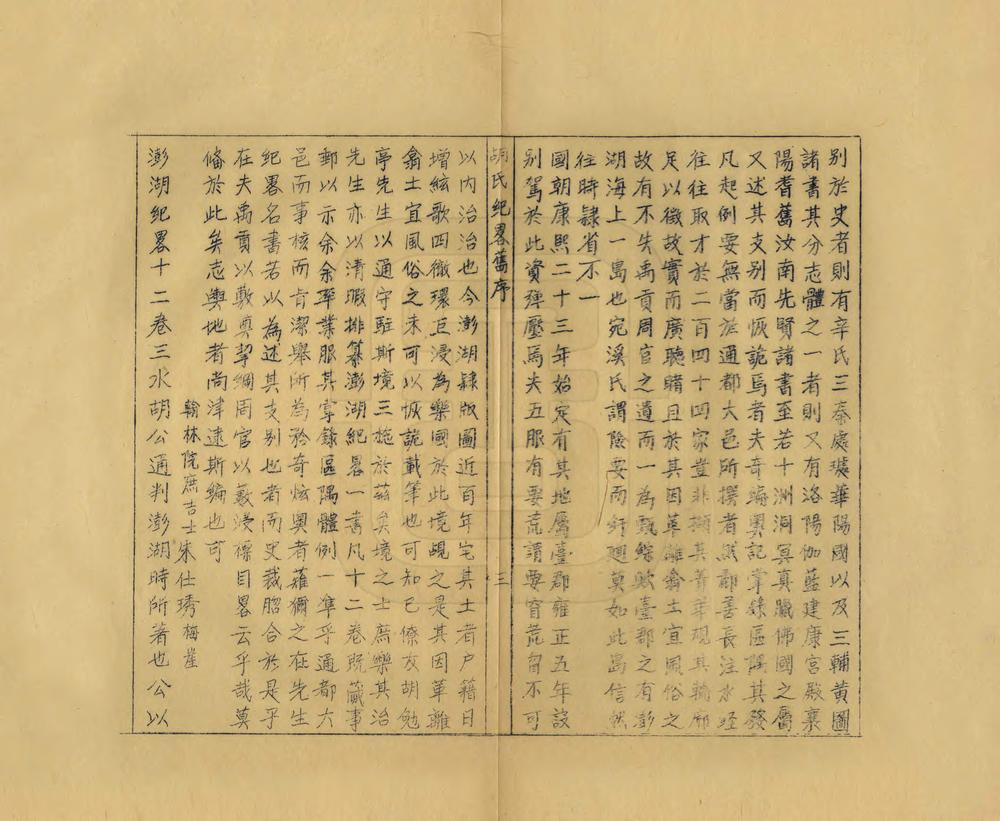 別於史者則有辛氏三秦處璩華陽國以及三輔黃圖
諸書其分志體之一者則又有洛陽伽藍建康宮殿襄
陽耆舊汝南先賢諸書至若十洲洞冥真臘佛國之屬
又述其支別而恢詭焉者夫奇編奧記掌錄區隅其發
凡起例要無當於通都大邑所撰者然酈善長注水經
往往取才於二百四十四家豈非擷其菁華規其輪廓
足以徵故實而廣聽睹且於其因革離齹土宜風俗之
故有不失禹貢周官之遺而一為甄綜歟臺郡之有澎
湖海上一島也宛溪氏謂險要而紆迴莫如此島信然
往時隸省不一
國朝康熙二十三年始定有其地屬臺郡雍正五年設
別駕於此資彈壓焉夫五服有要荒謂要有荒留不可
胡氏紀畧舊序 三
以內治治也今澎湖隸版圖近百年宅其土者戶籍日
增絃歌四徹環巨浸為樂國於此境覘之是其因革離
齹土宜風俗之未可以恢詭載筆也可知已僚友胡勉
亭先生以通守駐斯境三施於茲矣境之士庶樂其治
先生亦以清暇排纂澎湖紀畧一書凡十二卷既竣事
郵以示余余卒業服其掌錄區隅體例一準乎通都大
邑而事核而肯潔舉所為矜奇炫奧者薙獮之在先生
紀畧名書若以為述其支別也者而史裁脗合於是乎
在夫禹貢以敷奠挈綱周官以藪浸標目畧云乎哉莫
偹於此矣志輿地者尚津逮斯編也可
翰林院庶吉士朱仕琇梅崖
澎湖紀畧十二卷三水胡公通判澎湖時所著也公以